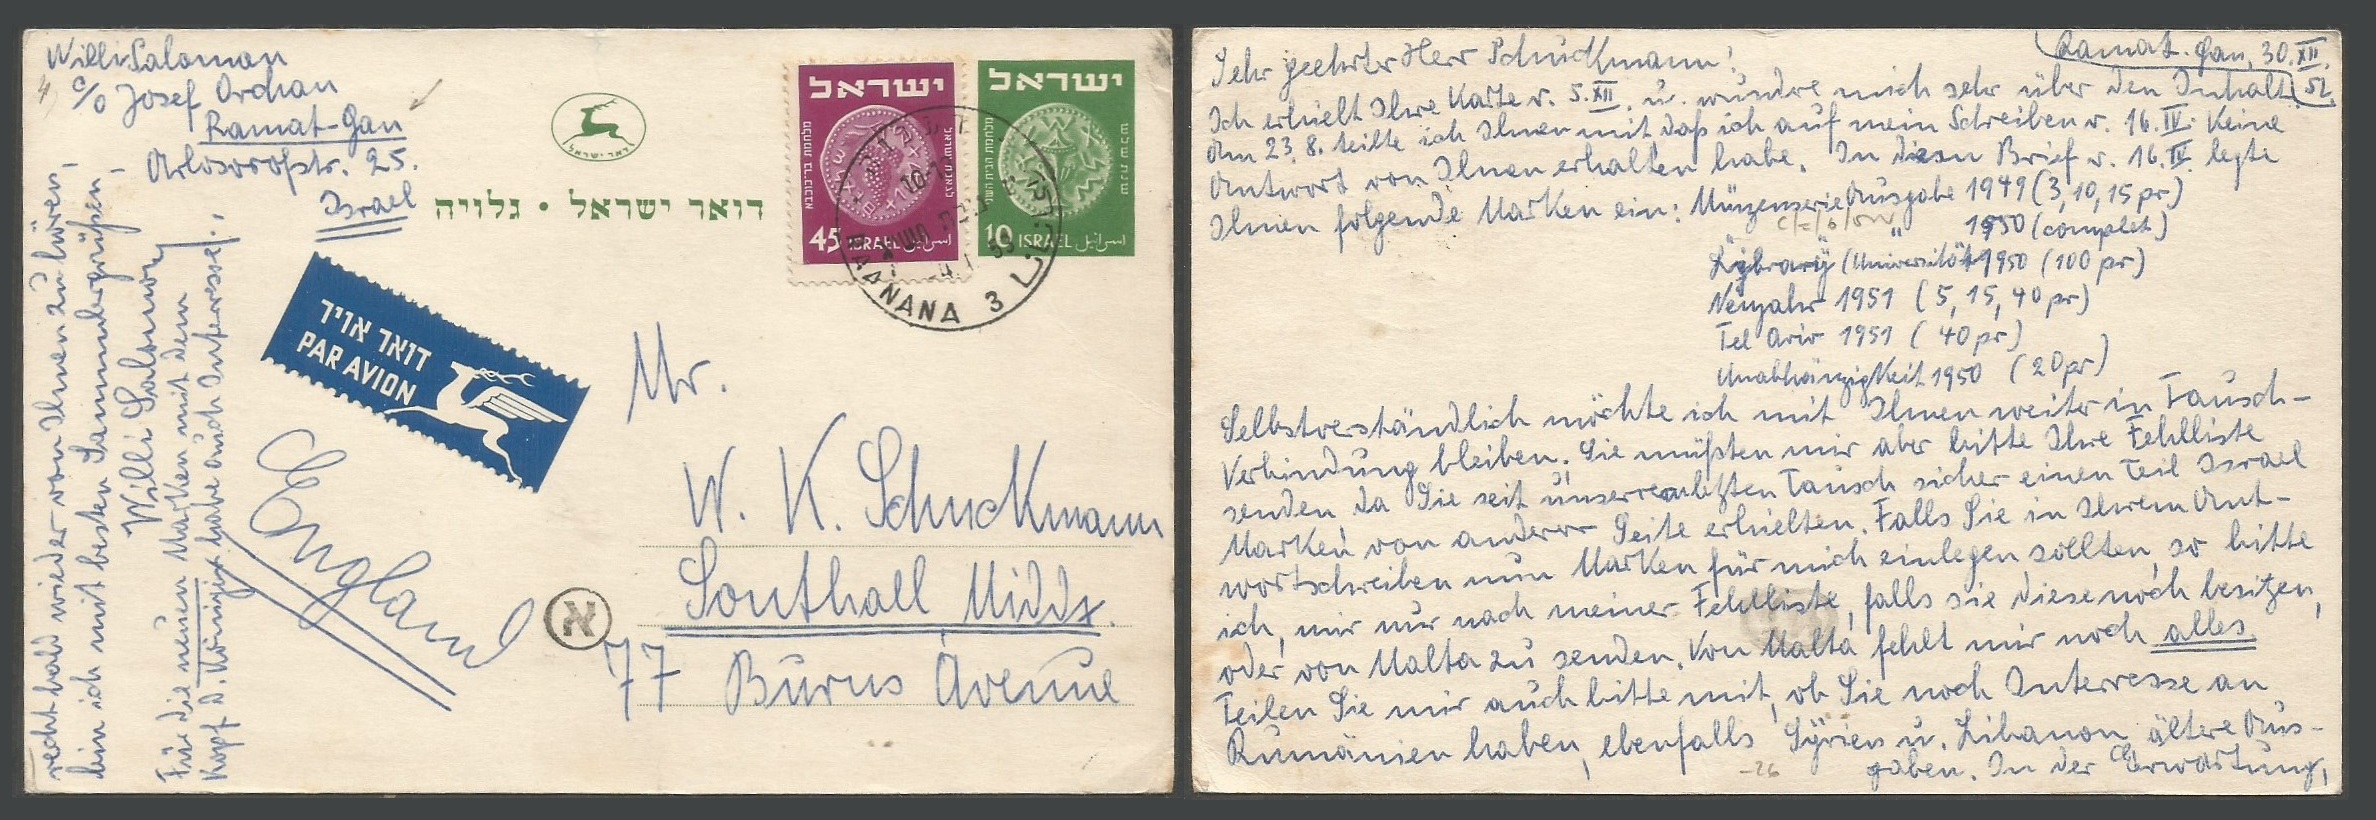 Willi Salomon
c/o Josef Orchan
Ramat-Gan
Arlosorofstr. 25.
Israel
דואר ישראל
דואר ישראל • גלויה
ישראל
מלחמת בר כוכבא
45 ISRAEL اسرائيل
ישראל
מלחמת הבית השני
שנת שלש
10 ISRAEL اسرائيل
RAANANA 3
דואר אויר
PAR AVION
England
Mr.
W. K. Schuckmann
Southall Middx.
77 Burns Avenue
א
recht bald wieder von Ihnen zu hören,
bin ich mit besten Sammlergrüßen,
Willi Salomon
Für die neuen Marken mit dem
Kopf d. Königin habe auch Interesse!
Ramat-Gan, 30. XII.
52.
Sehr geehrter Herr Schuckmann!
Ich erhielt Ihre Karte v. 5. XII. u. wundre mich sehr über den Inhalt.
Am 23. 8. teilte ich Ihnen mit, daß ich auf mein Schreiben v. 16. IV. keine
Antwort von Ihnen erhalten habe. In diesen Brief v. 16. IV. legte
Ihnen folgende Marken ein: Münzenserie Ausgabe 1949 (3, 10, 15 pr)
" 1950 (complet)
Lybrary (Universität) 1950 (100 pr)
Neujahr 1951 (5, 15, 40 pr)
Tel Aviv 1951 (40 pr)
Unabhängigkeit 1950 (20 pr)
Selbstverständlich möchte ich mit Ihnen weiter in Tausch-
Verbindung bleiben. Sie müßten mir aber bitte Ihre Fehlliste
senden, da Sie seit unserem letzten Tausch sicher einen Teil Israel
Marken von anderer Seite erhielten. Falls Sie in Ihrem Ant-
wortschreiben nun Marken für mich einlegen sollten, so bitte
ich, mir nur nach meiner Fehlliste, falls sie diese noch besitzen,
oder von Malta zu senden. Von Malta fehlt mir noch alles.
Teilen Sie mir auch bitte mit, ob Sie noch Interresse an
Rumänien haben, ebenfalls Syrien u. Libanon ältere Aus-
gaben. In der Erwartung,
-26